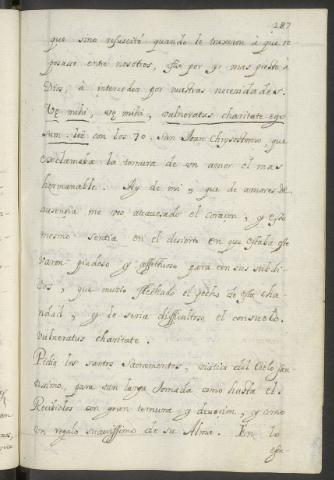 287
que sino resuscitó quando le truxeron à que re
posasse entre nosotros, fue por q̃ mas presto à
Dios, à interceder por nuestras necesidades.
Vę mihi, vę mihi, vulneratus charitate ego
sum. con los 70. san Juan Chrysostomo que
exclamaba la ternura de un amor el mas
Ay de mi, que de amores de
ausencia me veo atrauesado el corazon, y esso
mesmo sentia en el desierto en que estaba este
Varon piadoso y affectuoso para con sus subdi
tos, que murio flechado el pecho de esta cha
ridad, y le seria difficultoso el consuelo.
vulneratus charitate.
Pidio los santos Sacramentos, viatico del Cielo san
tissimo, para tan larga Jornada como hasta el.
Recibiolos con gran ternura y deuocion, y como
un regalo suauissimo de su Alma. En lo